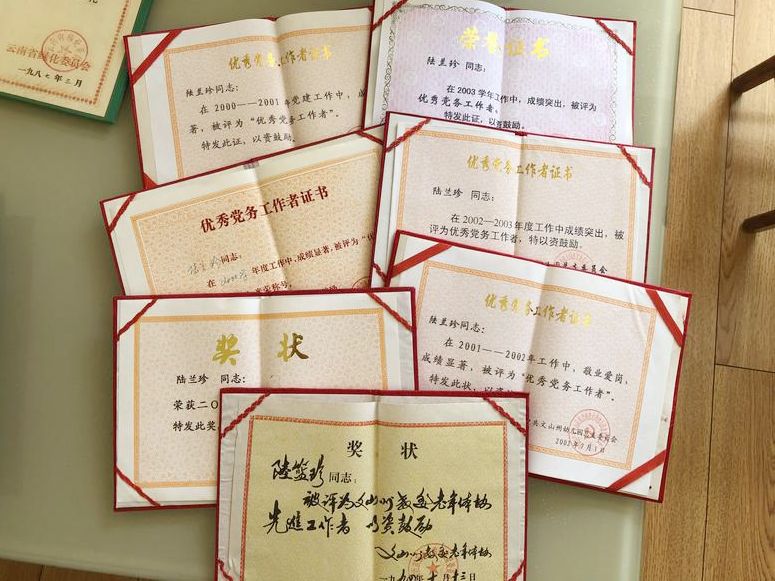 云南省绿化委员会
一九八七年三月
优秀党务工作者证书
陆兰珍同志：
在2000—2001年党建工作中，成
著，被评为“优秀党务工作者”。
特发此证，以资鼓励。
荣誉证书
陆兰珍 同志：
在2003学年工作中，成绩突出，被评为
优秀党务工作者。
特发此证，以资鼓励。
优秀党务工作者证书
同志：
在 年度工作中，成绩显著，被评为“优
秀荣称号。
优秀党务工作者证书
陆兰珍 同志：
在2002—2003年度工作中成绩突出，被
评为优秀党务工作者，特以资鼓励。
奖状
陆兰珍 同志：
荣获二〇
特发此奖
优秀党务工作者证书
陆兰珍同志：
在2001—2002年工作中，敬业爱岗，
成绩显著，被评为“优秀党务工作者”。
特发此状，以资
共文山州幼儿园总支委员会
2002年7月1日
奖状
陆蓝珍同志：
被评为文山州教委老年体协
先进工作者 以资鼓励
文山州教委老年体协
一九九四年十月十三日